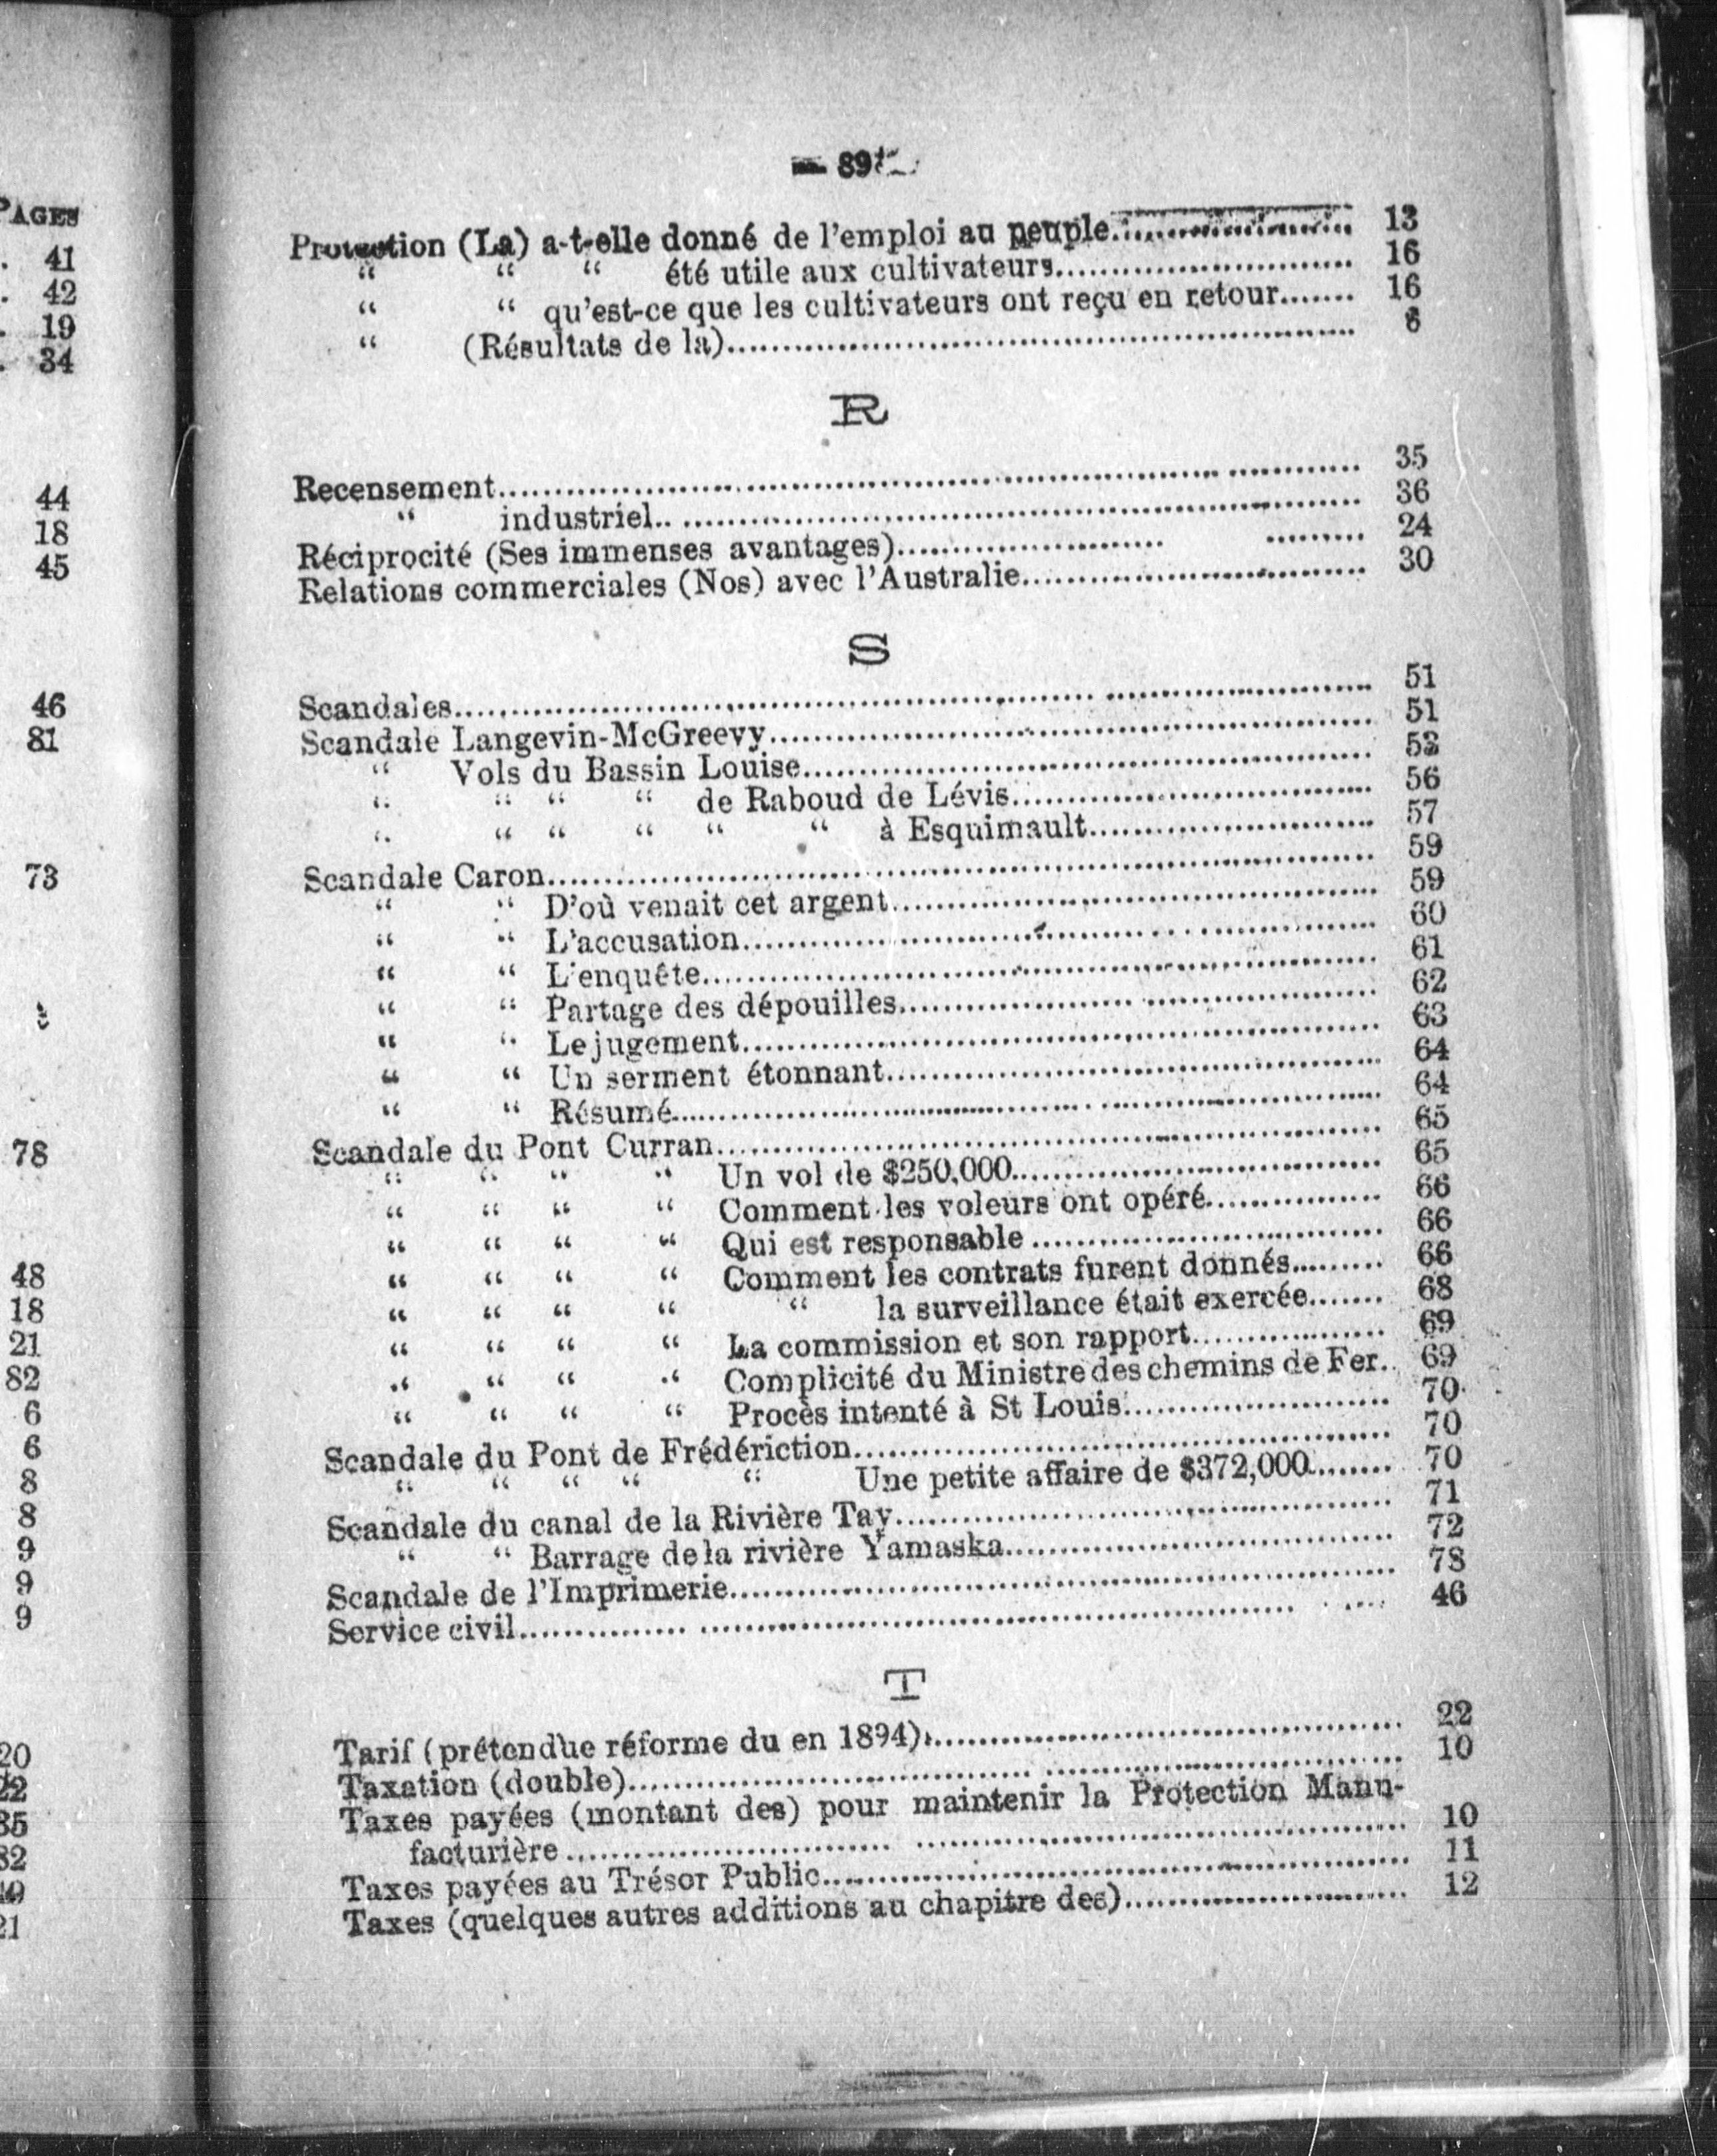 PAGES
41
42
19
34
44
18
45
46
81
73
78
48
18
21
82
6
6
8
8
9
9
9
20
22
— 89 —
Protection (La) a-t-elle donné de l'emploi au peuple.................... 13
“ “ “ été utile aux cultivateurs............................ 16
“ “ qu'est-ce que les cultivateurs ont reçu en retour....... 16
“ (Résultats de la)............................................................ 6
R
Recensement............................................................................ 35
“ industriel.. ............................................................ 36
Réciprocité (Ses immenses avantages)........................ ......... 24
Relations commerciales (Nos) avec l'Australie............................... 30
S
Scandales................................................................................ 51
Scandale Langevin-McGreevy...................................................... 51
“ Vols du Bassin Louise.................................................. 53
“ “ “ “ de Raboud de Lévis................................ 56
“ “ “ “ “ “ à Esquimault......................... 57
Scandale Caron........................................................................ 59
“ “ D'où venait cet argent.......................................... 59
“ “ L'accusation........................................................ 60
“ “ L'enquête............................................................ 61
“ “ Partage des dépouilles......................................... 62
“ “ Le jugement........................................................ 63
“ “ Un serment étonnant........................................... 64
“ “ Résumé................................................................ 64
Scandale du Pont Curran........................................................... 65
“ “ “ “ Un vol de $250,000................................. 65
“ “ “ “ Comment les voleurs ont opéré............... 66
“ “ “ “ Qui est responsable ............................... 66
“ “ “ “ Comment les contrats furent donnés......... 66
“ “ “ “ “ la surveillance était exercée....... 68
“ “ “ “ La commission et son rapport.................. 69
“ “ “ “ Complicité du Ministre des chemins de Fer.. 69
“ “ “ “ Procès intenté à St Louis........................ 70
Scandale du Pont de Frédériction............................................... 70
“ “ “ “ “ Une petite affaire de $372,000........ 70
Scandale du canal de la Rivière Tay........................................... 71
“ “ Barrage de la rivière Yamaska................................... 72
Scandale de l'Imprimerie........................................................... 78
Service civil............... .................................................... ..... 46
T
Tarif (prétendue réforme du en 1894)......................................... 22
Taxation (double)..................................................................... 10
Taxes payées (montant des) pour maintenir la Protection Manu-
facturière ........................................................................ 10
Taxes payées au Trésor Public.................................................... 11
Taxes (quelques autres additions au chapitre des)........................ 12